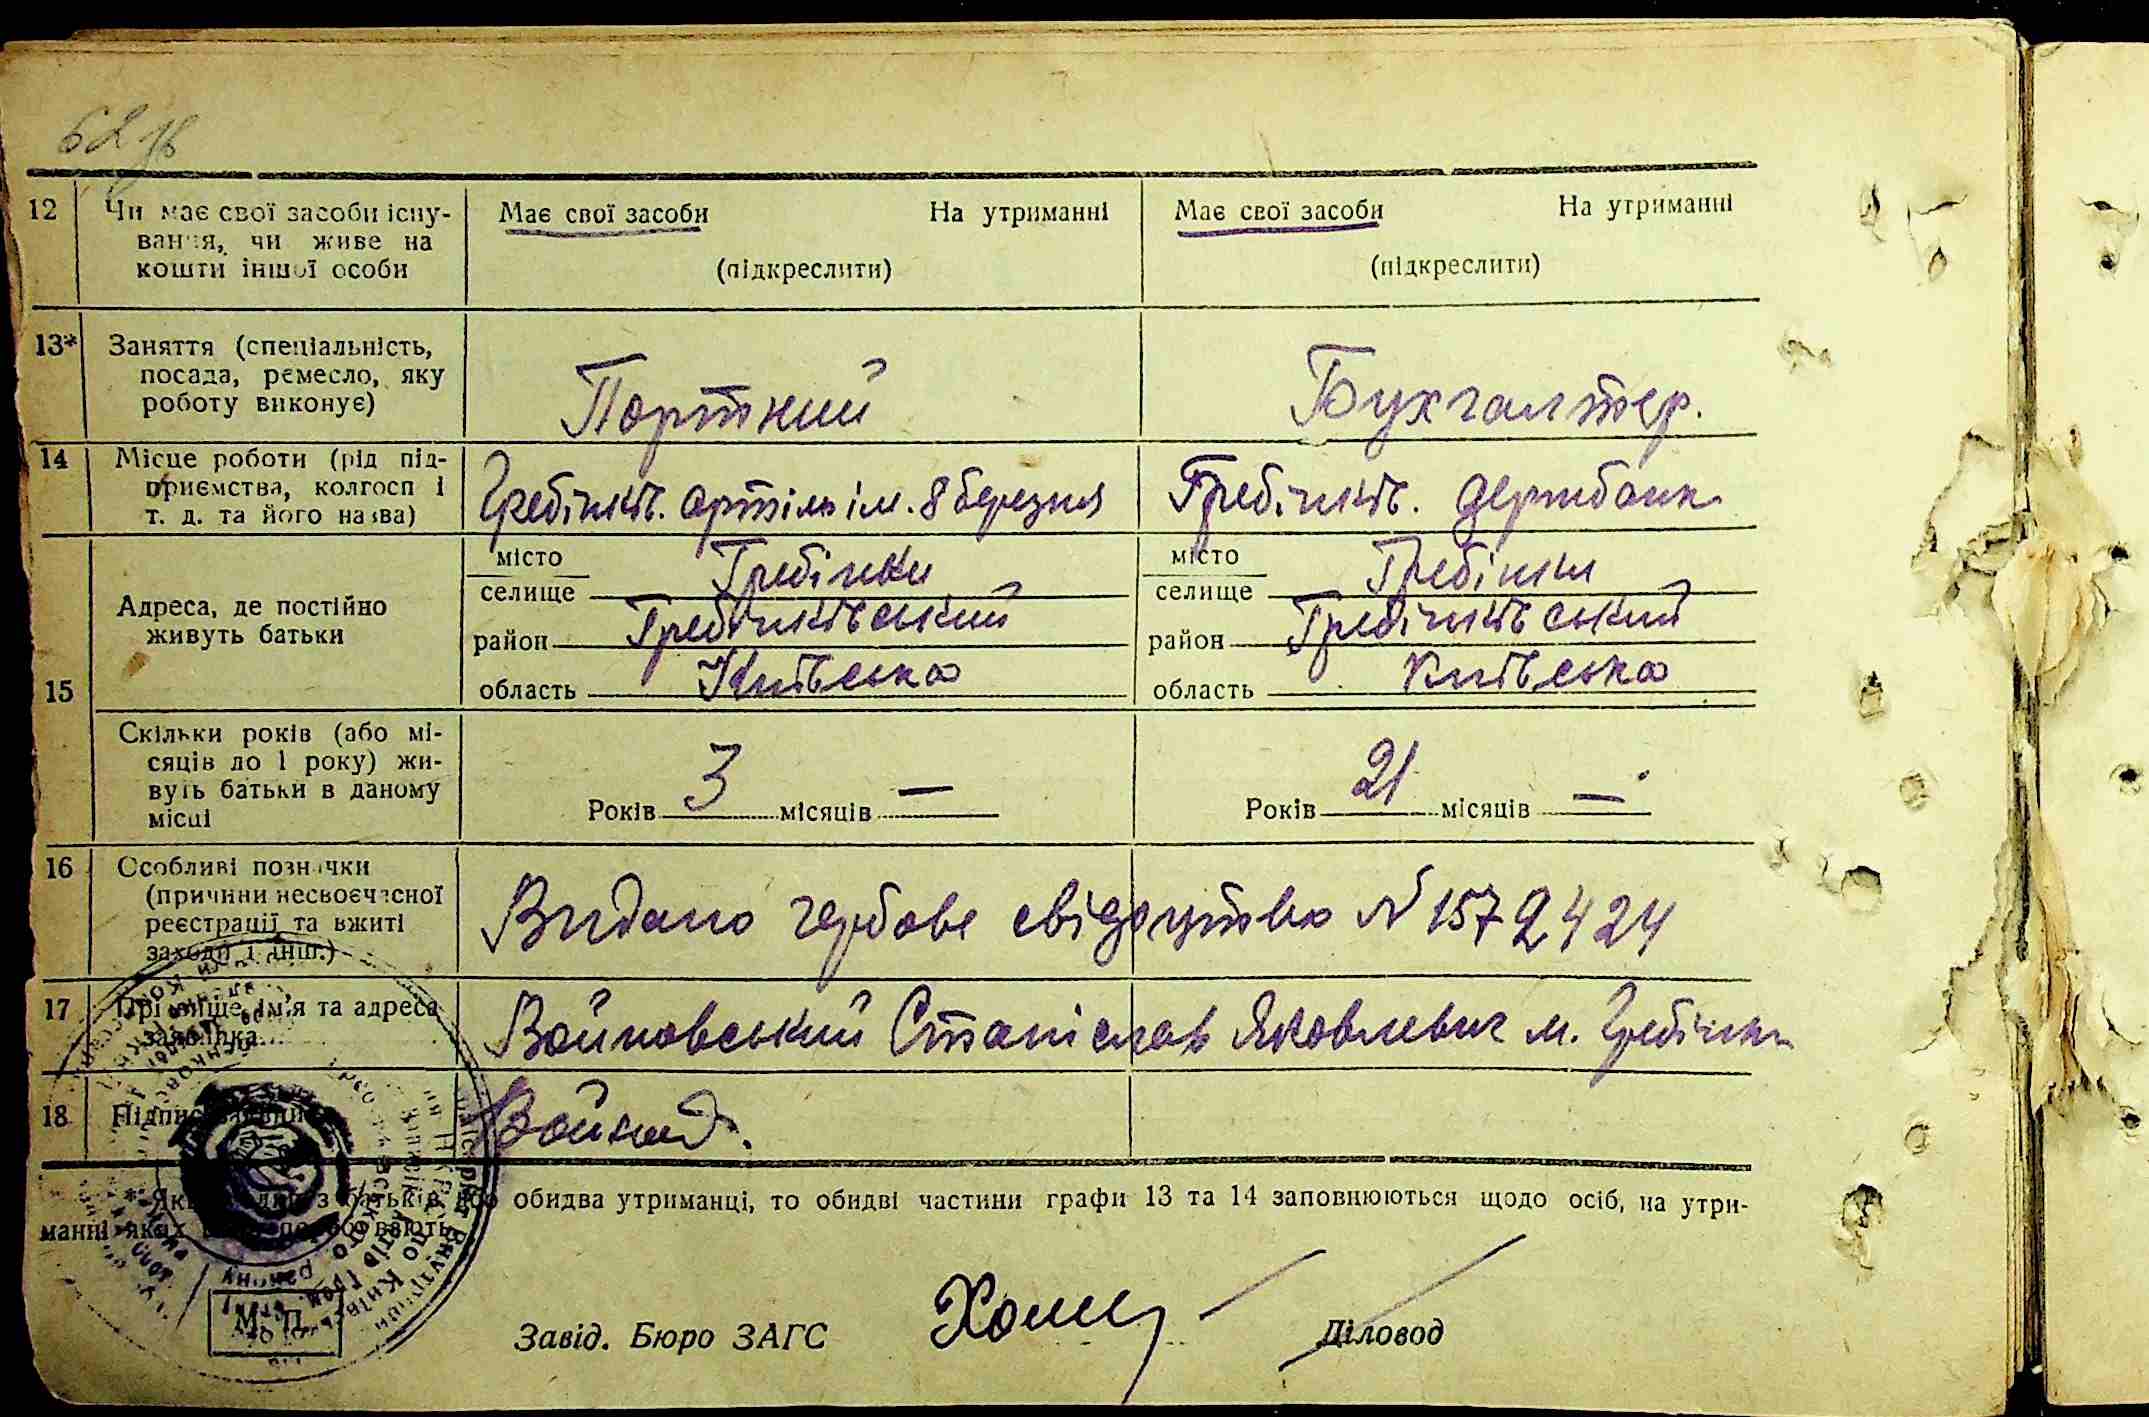 62 зв
12 Чи має свої засоби існу-
вання, чи живе на
кошти іншої особи
Має свої засоби На утриманні
(підкреслити)
Має свої засоби На утриманні
(підкреслити)
13* Заняття (спеціальність,
посада, ремесло, яку
роботу виконує)
Портний
Бухгалтер.
14 Місце роботи (рід під-
приємства, колгосп і
т. д. та його назва)
Гребінків. артіль ім. 8 березня
Гребінків. держбанк
15 Адреса, де постійно
живуть батьки
місто
селище Гребінки
район Гребінківський
область Київська
місто
селище Гребінки
район Гребінківський
область Київська
Скільки років (або мі-
сяців до 1 року) жи-
вуть батьки в даному
місці
Років 3 місяців —
Років 21 місяців —
16 Особливі позначки
(причини несвоєчасної
реєстрації та вжиті
заходи і інш.)
Видано гербове свідоцтво № 1572424
17 Прізвище, ім'я та адреса
заявника
Войновський Станіслав Яковлевич м. Гребінки
18 Підпис заявника
* Якщо один з батьків або обидва утриманці, то обидві частини графи 13 та 14 заповнюються щодо осіб, на утри-
манні яких вони перебувають.
М. П.
Завід. Бюро ЗАГС
Діловод